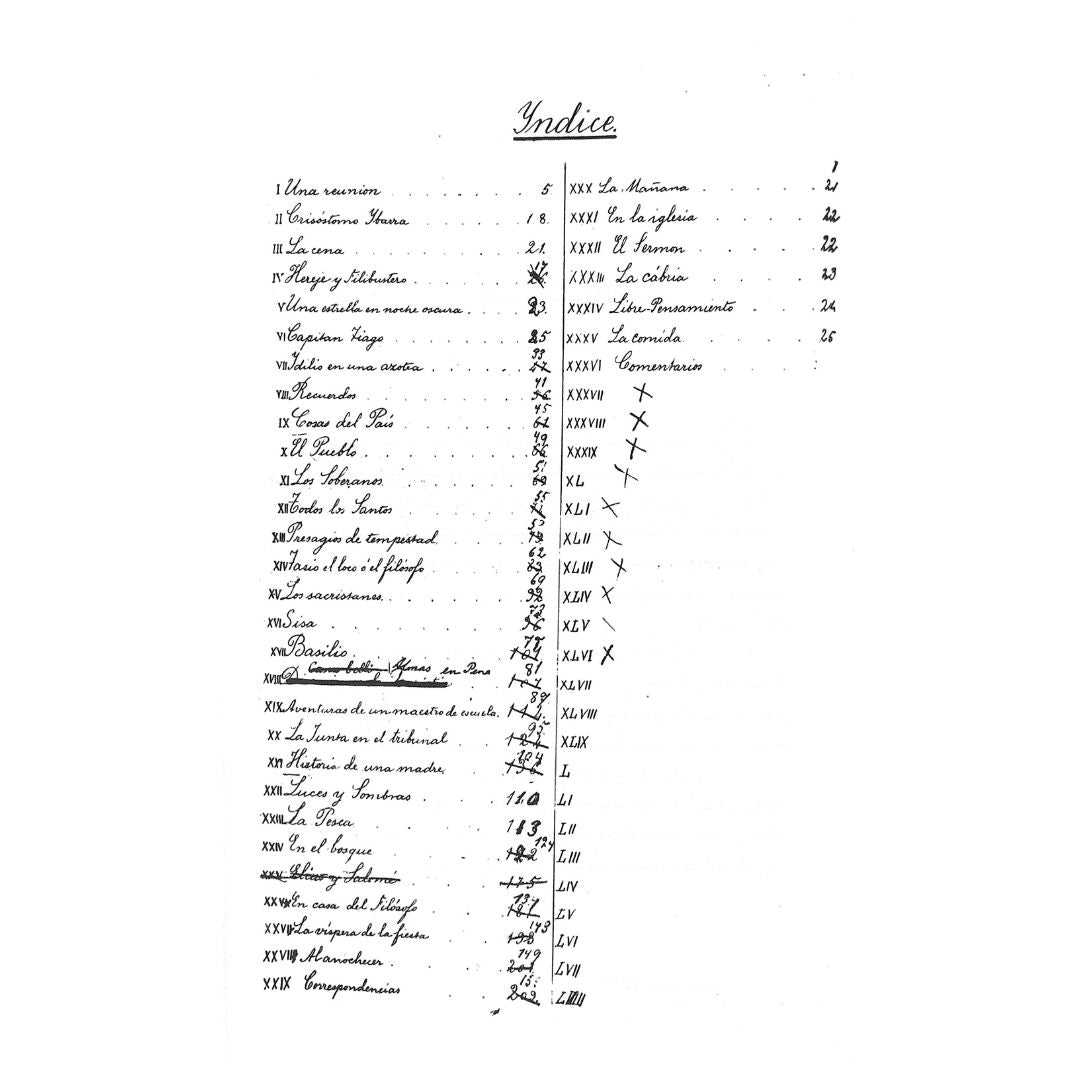 Yndice.
I Una reunion 5
II Crisóstomo Ybarra 18.
III La cena 21.
IV Hereje y Filibustero 17
V Una estrella en noche oscura 23.
VI Capitan Tiago 25
VII Idilio en una azotea 33
VIII Recuerdos 41
IX Cosas del País 45 61
X El Pueblo 49 66
XI Los Soberanos 51 69
XII Todos los Santos 55
XIII Presagios de tempestad
XIV Tasio el loco ó el filósofo 62 83
XV Los sacristanes 69 92
XVI Sisa 73 96
XVII Basilio 101
XVIII Almas en Pena 81 107
XIX Aventuras de un maestro de escuela. 114
XX La Junta en el tribunal 95 124
XXI Historia de una madre 104 136
XXII Luces y Sombras 110
XXIII La Pesca 113
XXIV En el bosque 124 122
XXV Elias y Salomé 175
XXV En casa del Filósofo 137 181
XXVI La víspera de la fiesta 143 193
XXVIII Al anochecer 149 201
XXIX Correspondencias 15 202
1
XXX La Mañana 21
XXXI En la iglesia 22
XXXII El Sermon 22
XXXIII La cábria 23
XXXIV Libre-Pensamiento 24
XXXV La comida 25
XXXVI Comentarios
XXXVII X
XXXVIII X
XXXIX X
XL X
XLI X
XLII X
XLIII X
XLIV X
XLV \
XLVI X
XLVII
XLVIII
XLIX
L
LI
LII
LIII
LIV
LV
LVI
LVII